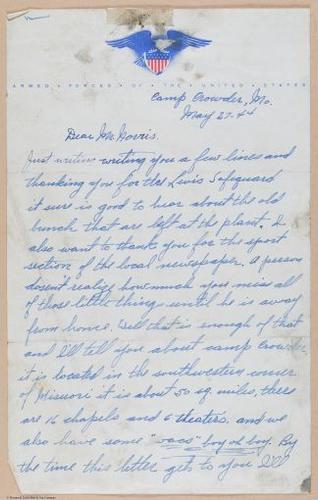 ARMED • FORCES • OF • THE • UNITED • STATES
Camp Crowder, Mo.
May 27-44
Dear Mr. Norris.
Just writing writing you a few lines and
thanking you for the Lewis Safeguard
it sure is good to hear about the old
bunch that are left at the plant. I
also want to thank you for the sport
section of the local newspaper. A person
doesn't realize how much you miss all
of those little things until he is away
from home. Well that is enough of that
and I'll tell you about camp Crowder,
it is located in the southwestern corner
of Missouri it is about 50 sq miles, there
are 16 chapels and 6 theaters, and we
also have some "wacs" boy oh boy. By
the time this letter gets to you I'll